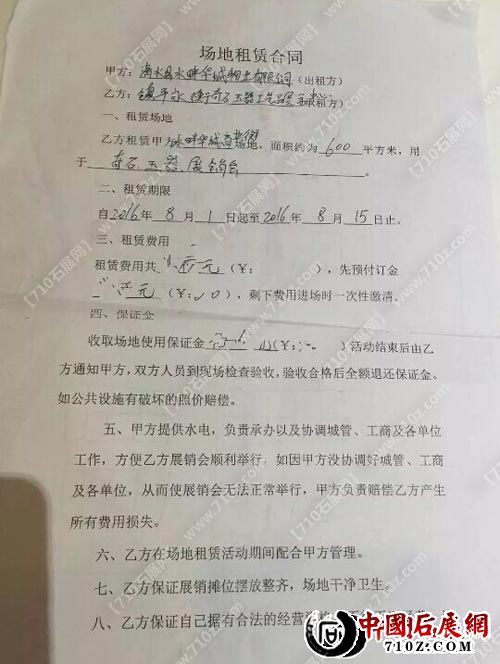 场地租赁合同
甲方：水畔华城物业有限公司（出租方）
乙方：镇平 奇石玉器工艺品展（承租方）
一、租赁场地
乙方租赁甲方水畔华城 场地，面积约为 600 平方米，用
于 奇石玉器展销会 。
二、租赁期限
自2016年 8 月 1 日起至 2016 年 8 月 15 日止。
三、租赁费用
租赁费用共 元（¥： ），先预付订金
元（¥： ），剩下费用进场时一次性缴清。
四、保证金
收取场地使用保证金 （¥： ）活动结束后由乙
方通知甲方，双方人员到现场检查验收，验收合格后全额退还保证金。
如公共设施有破坏的照价赔偿。
五、甲方提供水电，负责承办以及协调城管、工商及各单位
工作，方便乙方展销会顺利举行，如因甲方没协调好城管、工商
及各单位，从而使展销会无法正常举行，甲方负责赔偿乙方产生
所有费用损失。
六、乙方在场地租赁活动期间配合甲方管理。
七、乙方保证展销摊位摆放整齐，场地干净卫生。
八、乙方保证自己据有合法的经营
中國石展網
710z.com
【710石展网】
www.710z.com